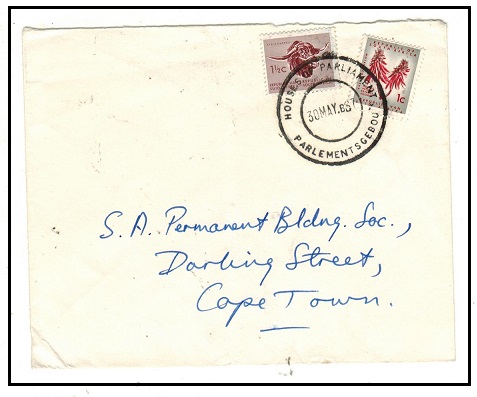 1½c
1c
HOUSES OF PARLIAMENT
30 MAY.
PARLEMENTSGEBOU
S.A. Permanent Bldng. Soc.,
Darling Street,
Cape Town.